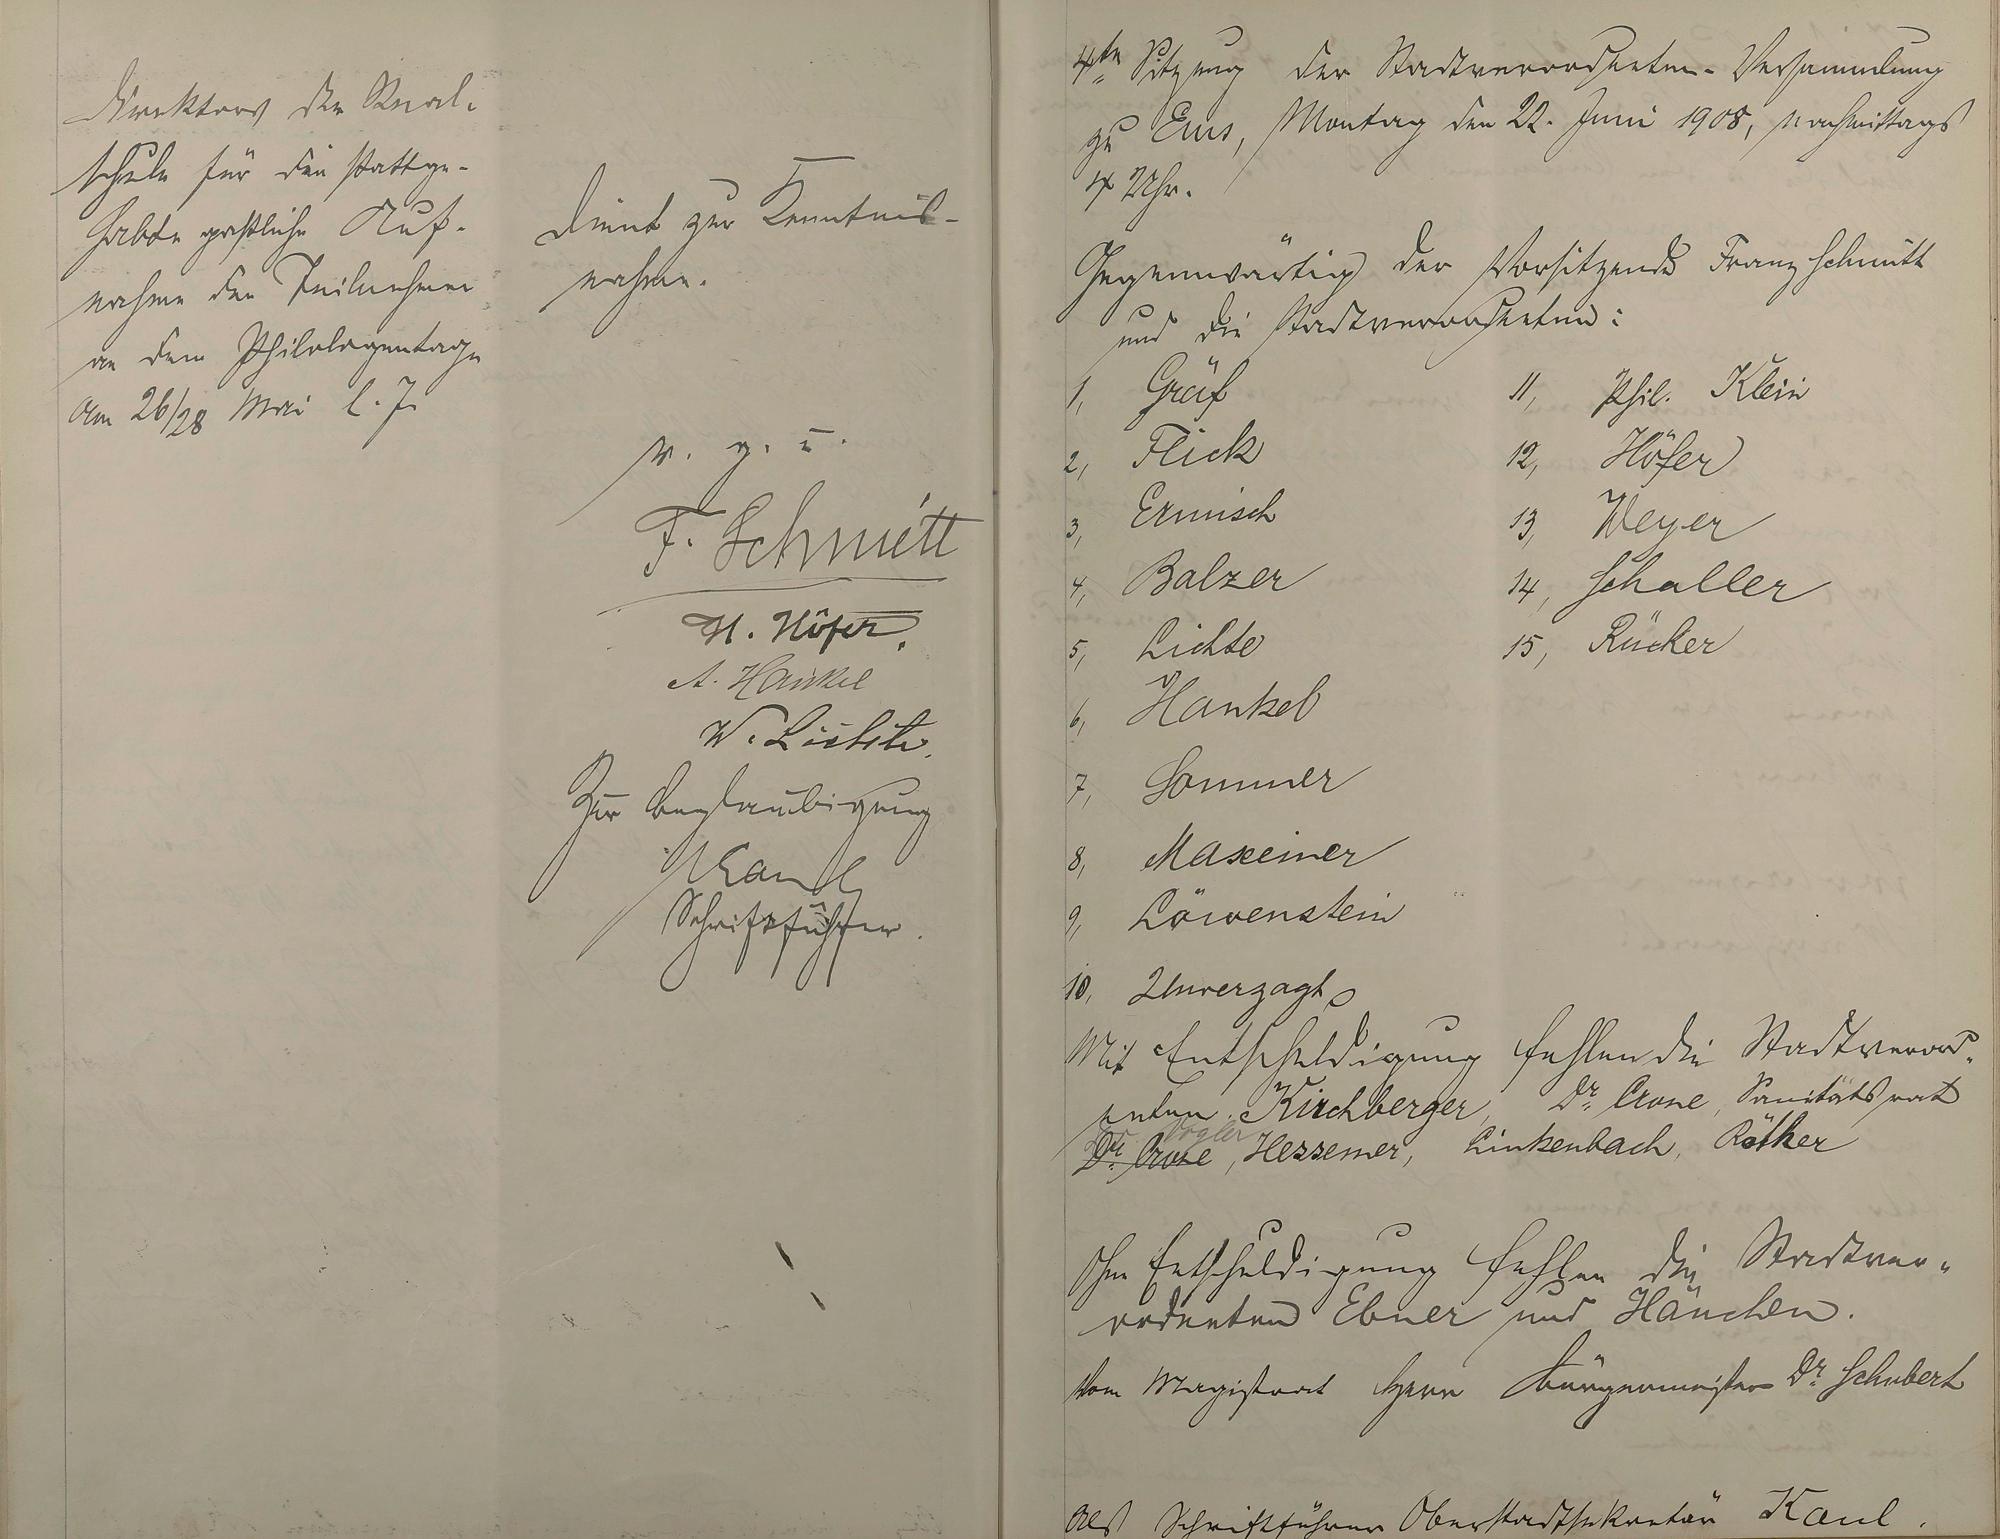 Direktors der Real-
schule für die stattge-
habte gastliche Auf-
nahme der Teilnehmer
an dem Philologentage
am 26/28 Mai l. J.
dient zur Kenntnis-
nahme.
v. g. u.
F. Schmitt
H. Höfer.
A. Hankel
W. Lichte.
Zur Beglaubigung
Kaul
Schriftführer.
4te Sitzung der Stadtverordneten-Versammlung
zu Ems, Montag den 22. Juni 1908, nachmittags
4 Uhr.
Gegenwärtig der Vorsitzende Franz Schmitt
und die Stadtverordneten:
1, Gräf
2, Flick
3, Ermisch
4, Balzer
5, Lichte
6, Hankel
7, Sommer
8, Maxeiner
9, Löwenstein
10, Unverzagt
11, Phil. Klein
12, Höfer
13, Weyer
14, Schaller
15, Rücker
Mit Entschuldigung fehlen die Stadtverord-
neten Kirchberger, Dr. Crone, Sanitätsrat
Vogler
Dr. Crone, Hessemer, Linkenbach, Röther
Ohne Entschuldigung fehlen die Stadtver-
ordneten Ebner und Hänchen.
Vom Magistrat Herr Bürgermeister Dr. Schubert
Als Schriftführer Oberstadtsekretär Kaul.